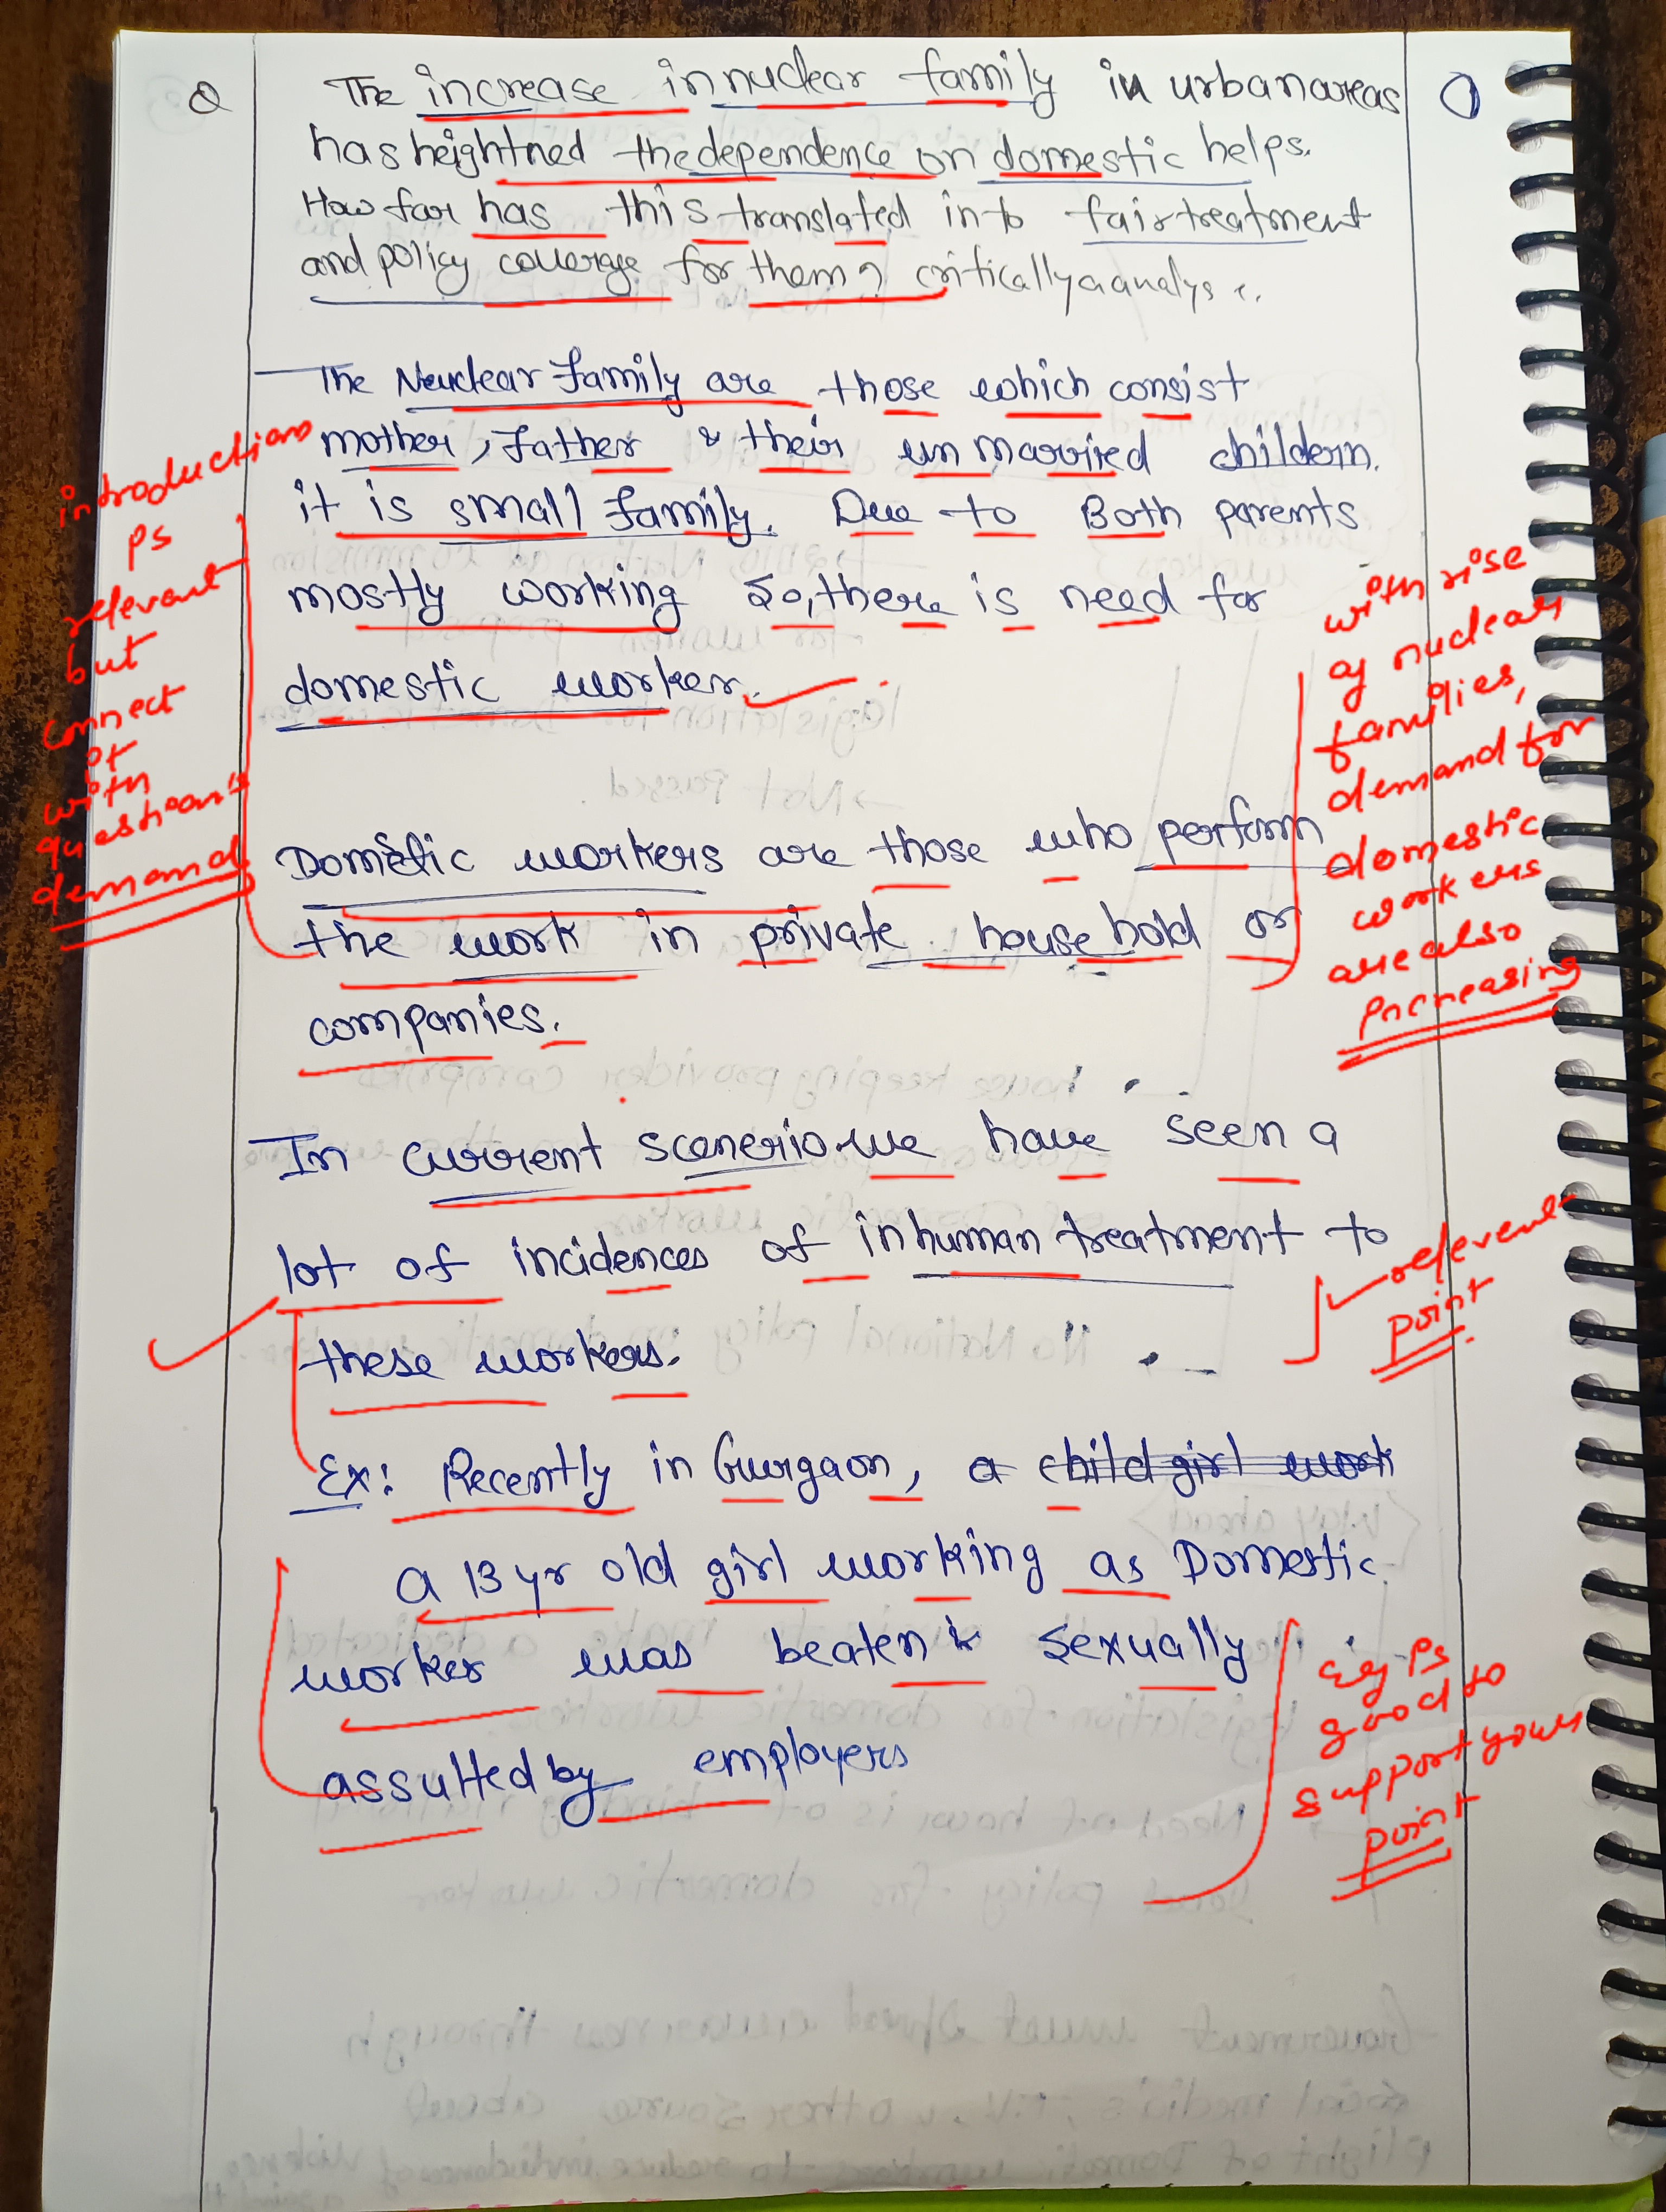 Q
The increase in nuclear family in urban areas
has heightned the dependence on domestic helps.
How far has this translated into fair treatment
and policy coverage for them? critically analys
The Neuclear family are those which consist
mother, father & their un married childern.
it is small family. Due to Both parents
mostly working So, there is need for
domestic worker.
Domestic workers are those who perform
the work in private house hold or
companies.
In current scenerio we have seen a
lot of incidences of inhuman treatment to
these workers.
Ex: Recently in Gurgaon, a child girl work
a 13 yr old girl working as Domestic
worker was beaten & sexually
assulted by employers
introduction
ps
relevant
but
connect
it
with
question's
demand
with rise
of nuclear
families,
demand for
domestic
workers
are also
increasing
relevent
point
eg ps
good to
support your
point